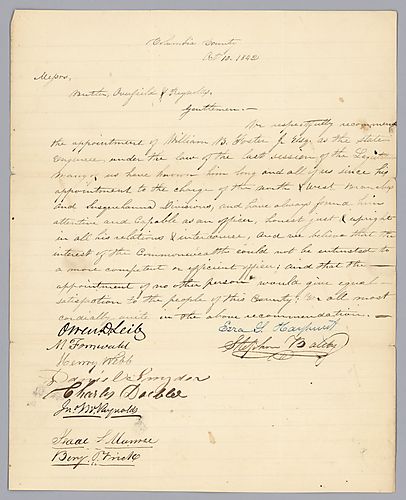 Columbia County
Oct 10. 1842
Messrs,
Butler, Overfield & Reynolds,
Gentlemen.—
We respectfully recommend
the appointment of William B. Foster Jr Esq. as the State
Engineer, under the law of the last session of the
Many of us have known him long and all of us since his
appointment to the charge of the north & West Branches
and Susquehanna Divisions, and have always found him
attentive and capable as an officer, honest, just & upright
in all his relations & intercourse, And we believe that the
interest of the Commonwealth could not be entrusted to
a more competent or efficient officer; and that the
appointment of no other person would give equal
satisfaction to the people of this County. We all most
cordially unite in the above recommendation.—
Owen D. Leib
Ezra S. Hayhurst
N Fornwald
Stephen Baldy
Henry Webb
Daniel Snyder
Charles Doebler
Jno McReynolds
Isaac S Monroe
Benj. P. Frick